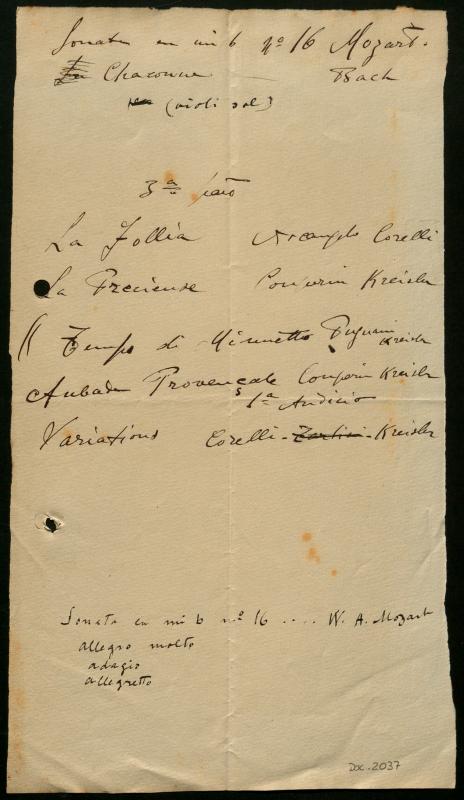 Sonata en mi b nº 16 Mozart.
Chaconne — Bach
(violi sol)
3ª
La Follia Arcangelo Corelli
La Precieuse Couperin Kreisler
Tempo di Minuetto Pugnani Kreisler
Aubade Provençale Couperin Kreisler
1ª Audicio
Variations Corelli - Tartini - Kreisler
Sonata en mi b nº 16 .... W. A. Mozart
allegro molto
adagio
allegretto
Doc. 2037